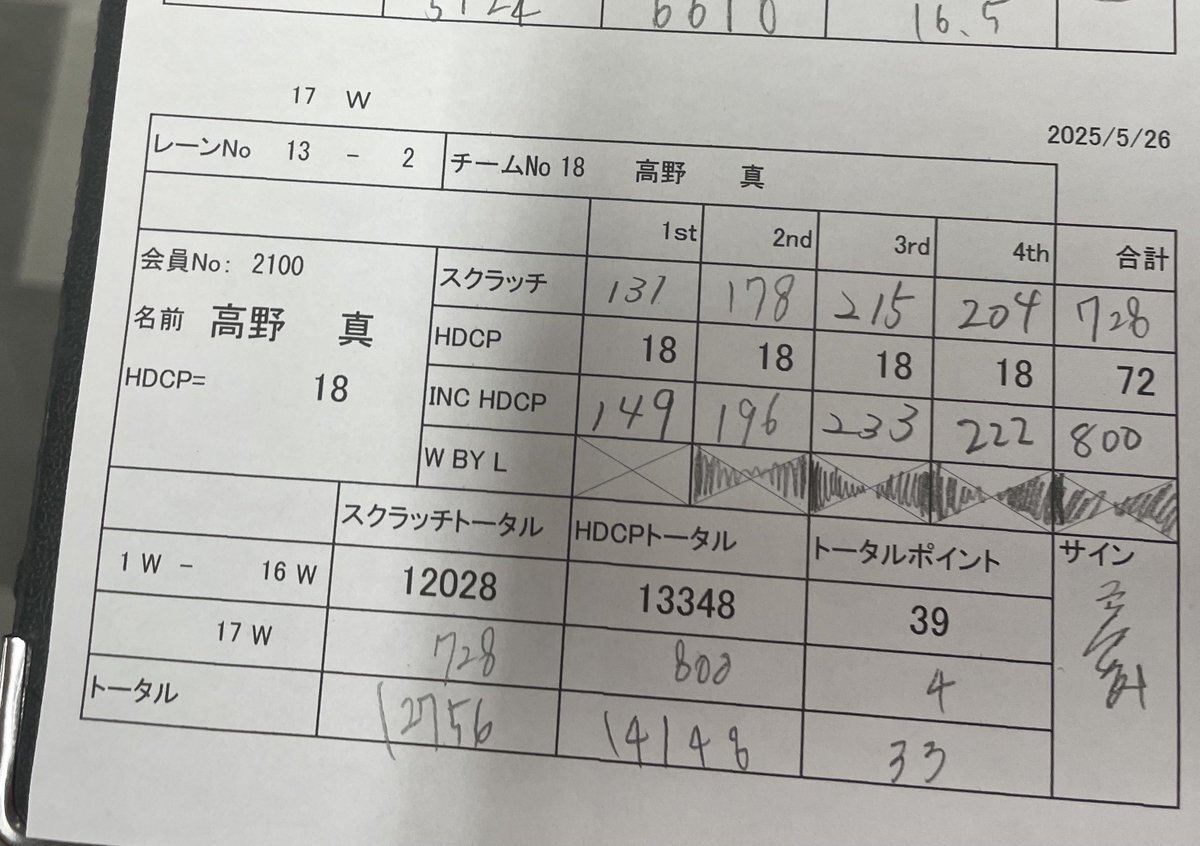 5124 6610 16.5
17 W
2025/5/26
レーンNo 13 - 2 チームNo 18 高野 真
1st 2nd 3rd 4th 合計
会員No: 2100
名前 高野 真
HDCP= 18
スクラッチ 131 178 215 204 728
HDCP 18 18 18 18 72
INC HDCP 149 196 233 222 800
W BY L
スクラッチトータル HDCPトータル トータルポイント サイン
1 W - 16 W 12028 13348 39
17 W 728 800 4
トータル 12756 14148 33